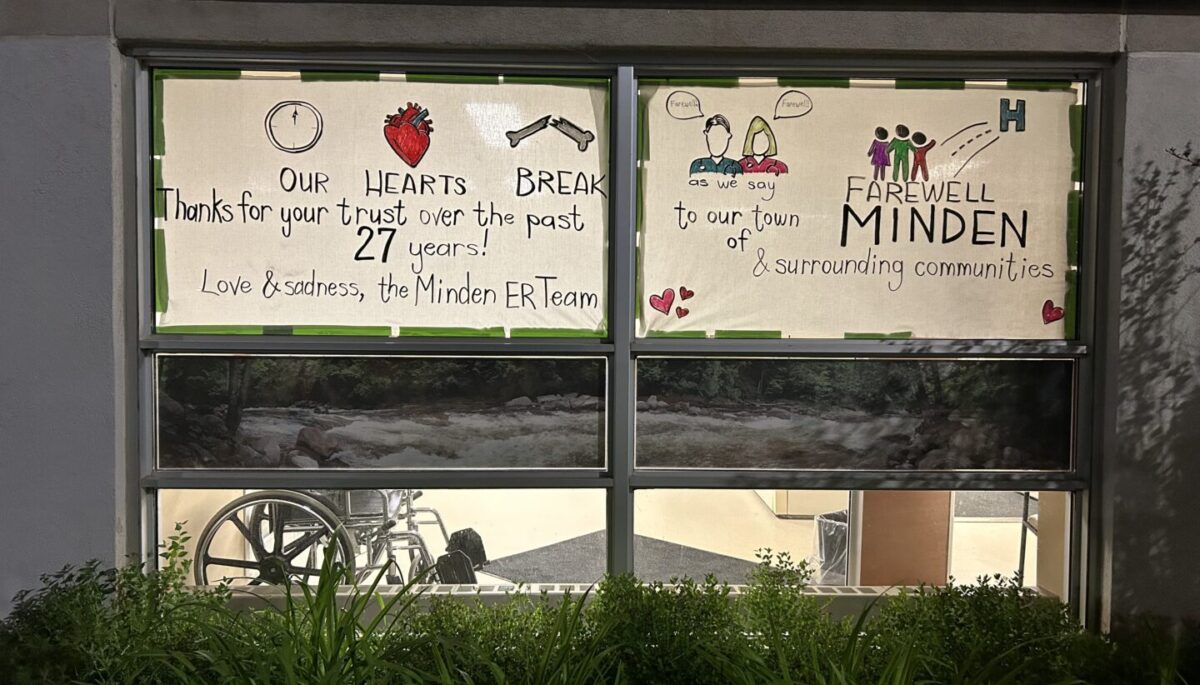 OUR HEARTS BREAK
Thanks for your trust over the past
27 years!
Love & sadness, the Minden ER Team
Farewell Farewell
H
as we say
to our town
of
FAREWELL
MINDEN
& surrounding communities